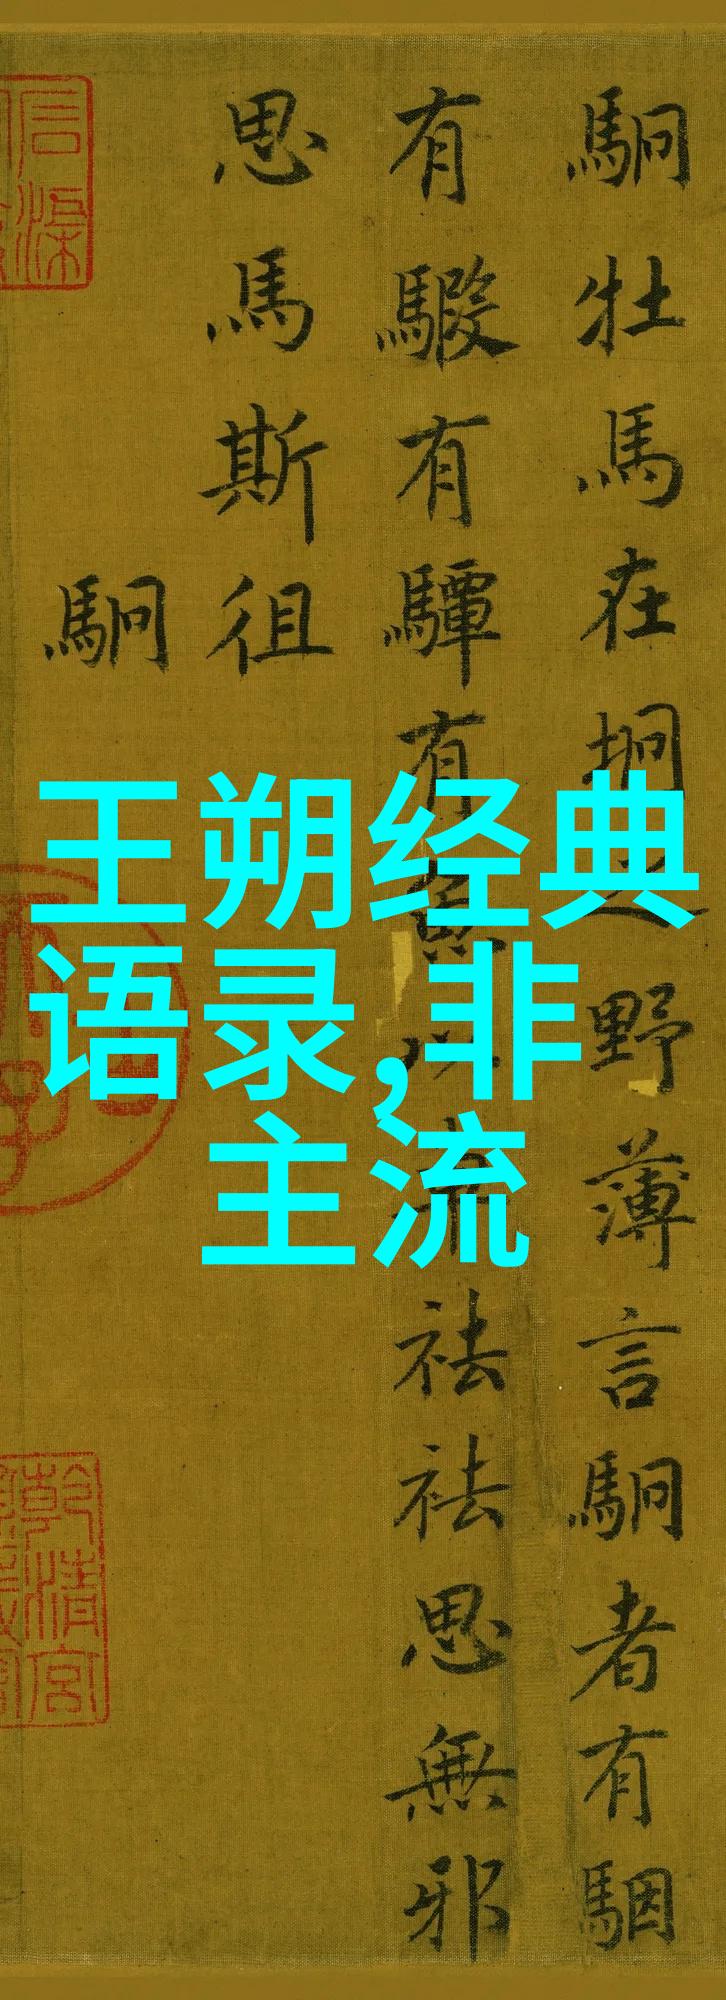 王朔经典
语录,非
主流
駉牡馬在坰之野薄言駉者有駰
有騢有驔有魚以車祛祛思無邪
思馬斯徂
駉
乾清宮